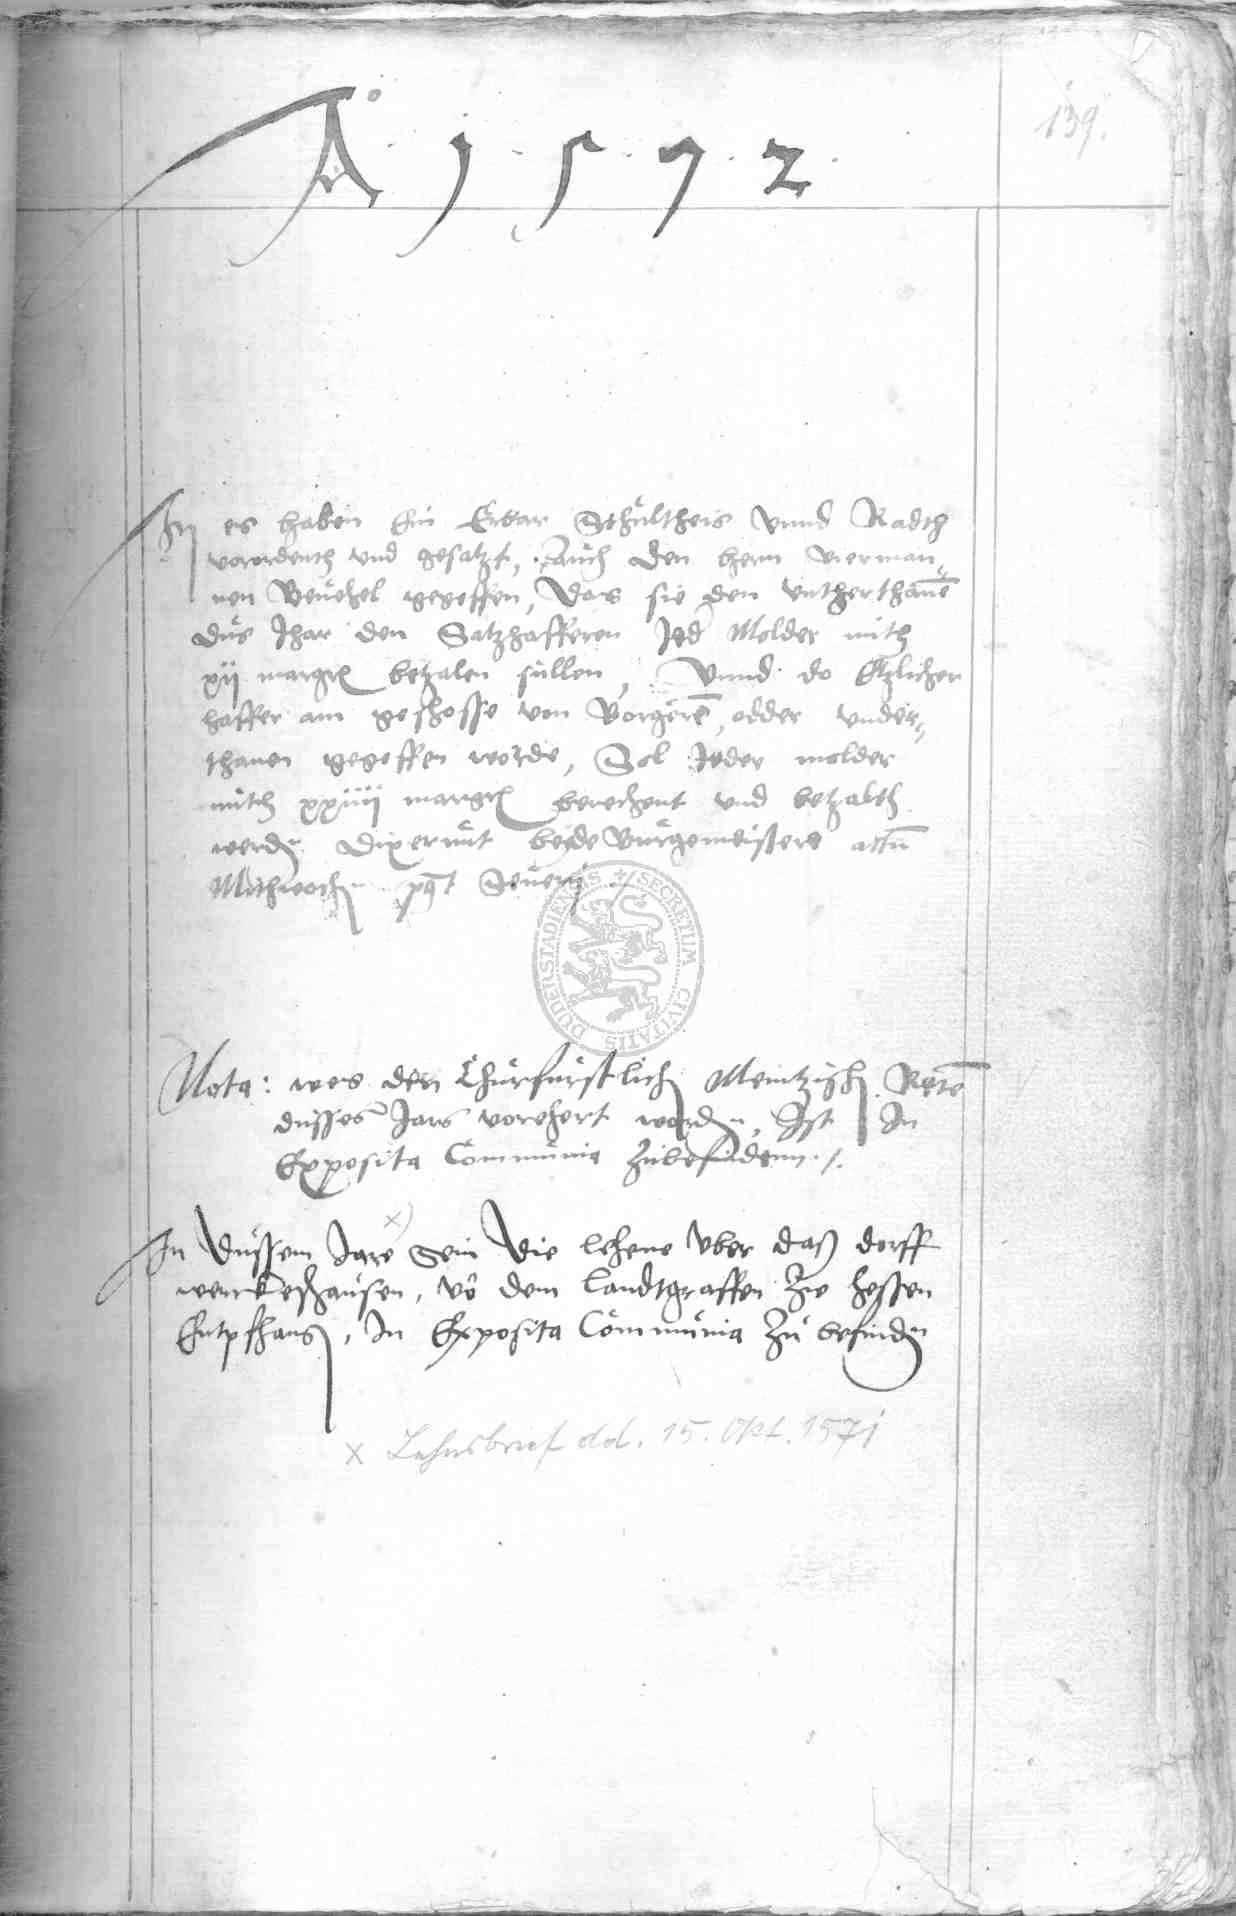 139.
Aº 1 · 5 · 7 · 2 ·
Itz es haben Ein Erbar Schultheis Vnnd Radth
vorordenth vnd gesatzt, auch den hern vierman¬
nen Beuehel gegeffen, Das sie den vntherthanē
dūs Jhar den Satzhafferen Jed Molder mith
xij margr betzalen sullen, Vnnd do Etzlicher
haffer am geschosse von Borgerē, odder vnder¬
thanen gegeffen worde, Sol Jeder molder
mith xxiiij margr berechent vnd betzalth
werdn Dixerunt beyde Burgemeistere actū
Mithwochn pꝰt Seueri
SECRETUM CIVITATIS DUDERSTADIENSIS
Nota: wes den Churfurstlichn Meintzischn Retē
dusses Jars vorehert wordn, Ist In
Exposita Communia zubefindenn ./.
x)
In Dussem Jare sein Die lehene vber daß dorff
werckeshausen, vō dem Landtgraffen zw hessen
Entpfhangn, In Exposita Communia zu befindn
x Lehnsbrief dd. 15. Okt. 1571